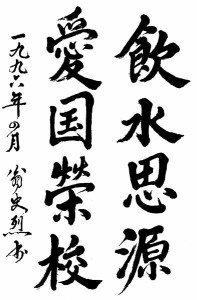 飲水思源
愛国榮校
一九九六年四月 翁史烈書